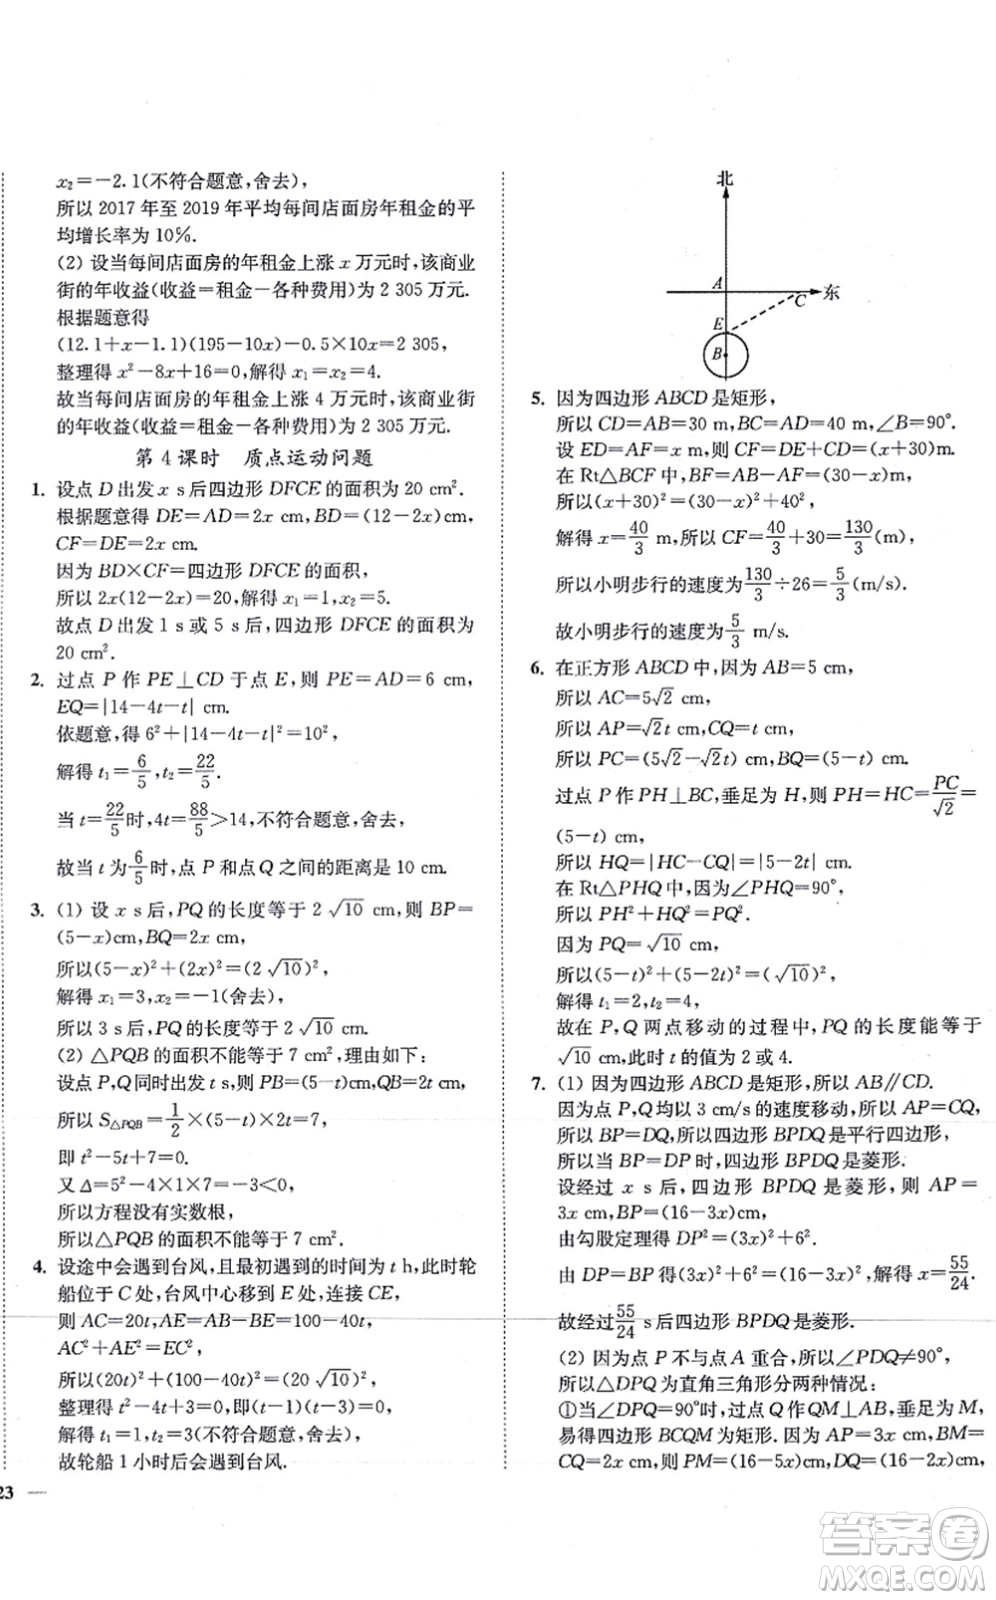 x₂=-2.1(不符合题意,舍去),
所以 2017 年至 2019 年平均每间店面房年租金的平
均增长率为 10%.
(2) 设当每间店面房的年租金上涨 x 万元时,该商业
街的年收益(收益=租金-各种费用)为 2 305 万元.
根据题意得
(12.1+x-1.1)(195-10x)-0.5×10x=2 305,
整理得 x²-8x+16=0,解得 x₁=x₂=4.
故当每间店面房的年租金上涨 4 万元时,该商业街的
年收益(收益=租金-各种费用)为 2 305 万元.
第 4 课时 质点运动问题
1. 设点 D 出发 x s后四边形 DFCE 的面积为 20 cm².
根据题意得 DE=AD=2x cm,BD=(12-2x)cm,
CF=DE=2x cm.
因为 BD×CF=四边形 DFCE 的面积,
所以 2x(12-2x)=20,解得 x₁=1,x₂=5.
故点 D 出发 1 s 或 5 s 后,四边形 DFCE 的面积为
20 cm².
2. 过点 P 作 PE⊥CD 于点 E,则 PE=AD=6 cm,
EQ=|14-4t-t| cm.
依题意,得 6²+|14-4t-t|²=10²,
解得 t₁=6/5,t₂=22/5.
当 t=22/5时,4t=88/5>14,不符合题意,舍去,
故当 t 为6/5时,点 P 和点 Q 之间的距离是 10 cm.
3. (1) 设 x s后,PQ 的长度等于 2√10 cm,则 BP=
(5-x)cm,BQ=2x cm,
所以(5-x)²+(2x)²=(2√10)²,
解得 x₁=3,x₂=-1(舍去),
所以 3 s后,PQ 的长度等于 2√10 cm.
(2) △PQB 的面积不能等于 7 cm²,理由如下:
设点 P,Q 同时出发 t s,则 PB=(5-t)cm,QB=2t cm,
所以 S△PQB=1/2×(5-t)×2t=7,
即 t²-5t+7=0.
又 Δ=5²-4×1×7=-3<0,
所以方程没有实数根,
所以△PQB 的面积不能等于 7 cm².
4. 设途中会遇到台风,且最初遇到的时间为 t h,此时轮
船位于 C 处,台风中心移到 E 处,连接 CE,
则 AC=20t,AE=AB-BE=100-40t,
AC²+AE²=CE²,
所以(20t)²+(100-40t)²=(20√10)²,
整理得 t²-4t+3=0,即(t-1)(t-3)=0,
解得 t₁=1,t₂=3(不符合题意,舍去),
故轮船 1 小时后会遇到台风.
23
北
A
C
东
E
B
5. 因为四边形 ABCD 是矩形,
所以 CD=AB=30 m,BC=AD=40 m,∠B=90°.
设 ED=AF=x m,则 CF=DE+CD=(x+30)m.
在 Rt△BCF 中,BF=AB-AF=(30-x)m,
所以(x+30)²=(30-x)²+40²,
解得 x=40/3 m,所以 CF=40/3+30=130/3(m),
所以小明步行的速度为130/3÷26=5/3(m/s).
故小明步行的速度为5/3 m/s.
6. 在正方形 ABCD 中,因为 AB=5 cm,
所以 AC=5√2 cm,
所以 AP=√2t cm,CQ=t cm,
所以 PC=(5√2-√2t) cm.
过点 P 作 PH⊥BC,垂足为 H,则 PH=HC=PC/√2=
(5-t) cm,
所以 HQ=|HC-CQ|=|5-2t| cm.
在 Rt△PHQ 中,因为∠PHQ=90°,
所以 PH²+HQ²=PQ².
因为 PQ=√10 cm,
所以(5-t)²+(5-2t)²=(√10)²,
解得 t₁=2,t₂=4,
故在 P,Q 两点移动的过程中,PQ 的长度能等于
√10 cm,此时 t 的值为 2 或 4.
7. (1) 因为四边形 ABCD 是矩形,所以 AB∥CD.
因为点 P,Q 均以 3 cm/s 的速度移动,所以 AP=CQ,
所以 BP=DQ,所以四边形 BPDQ 是平行四边形,
所以当 BP=DP 时,四边形 BPDQ 是菱形.
设经过 x s后,四边形 BPDQ 是菱形,则 AP=
3x cm,BP=(16-3x)cm,
由勾股定理得 DP²=(3x)²+6².
由 DP=BP 得(3x)²+6²=(16-3x)²,解得 x=55/24.
故经过55/24 s后四边形 BPDQ 是菱形.
(2) 因为点 P 不与点 A 重合,所以∠PDQ≠90°,
所以△DPQ 为直角三角形分两种情况:
①当∠DPQ=90°时,过点 Q 作 QM⊥AB,垂足为 M,
易得四边形 BCQM 为矩形,所以 BM=CQ=
2x cm,则 PM=(16-5x)cm,DQ=(16-2x)cm,
答案圈
MXQE.COM